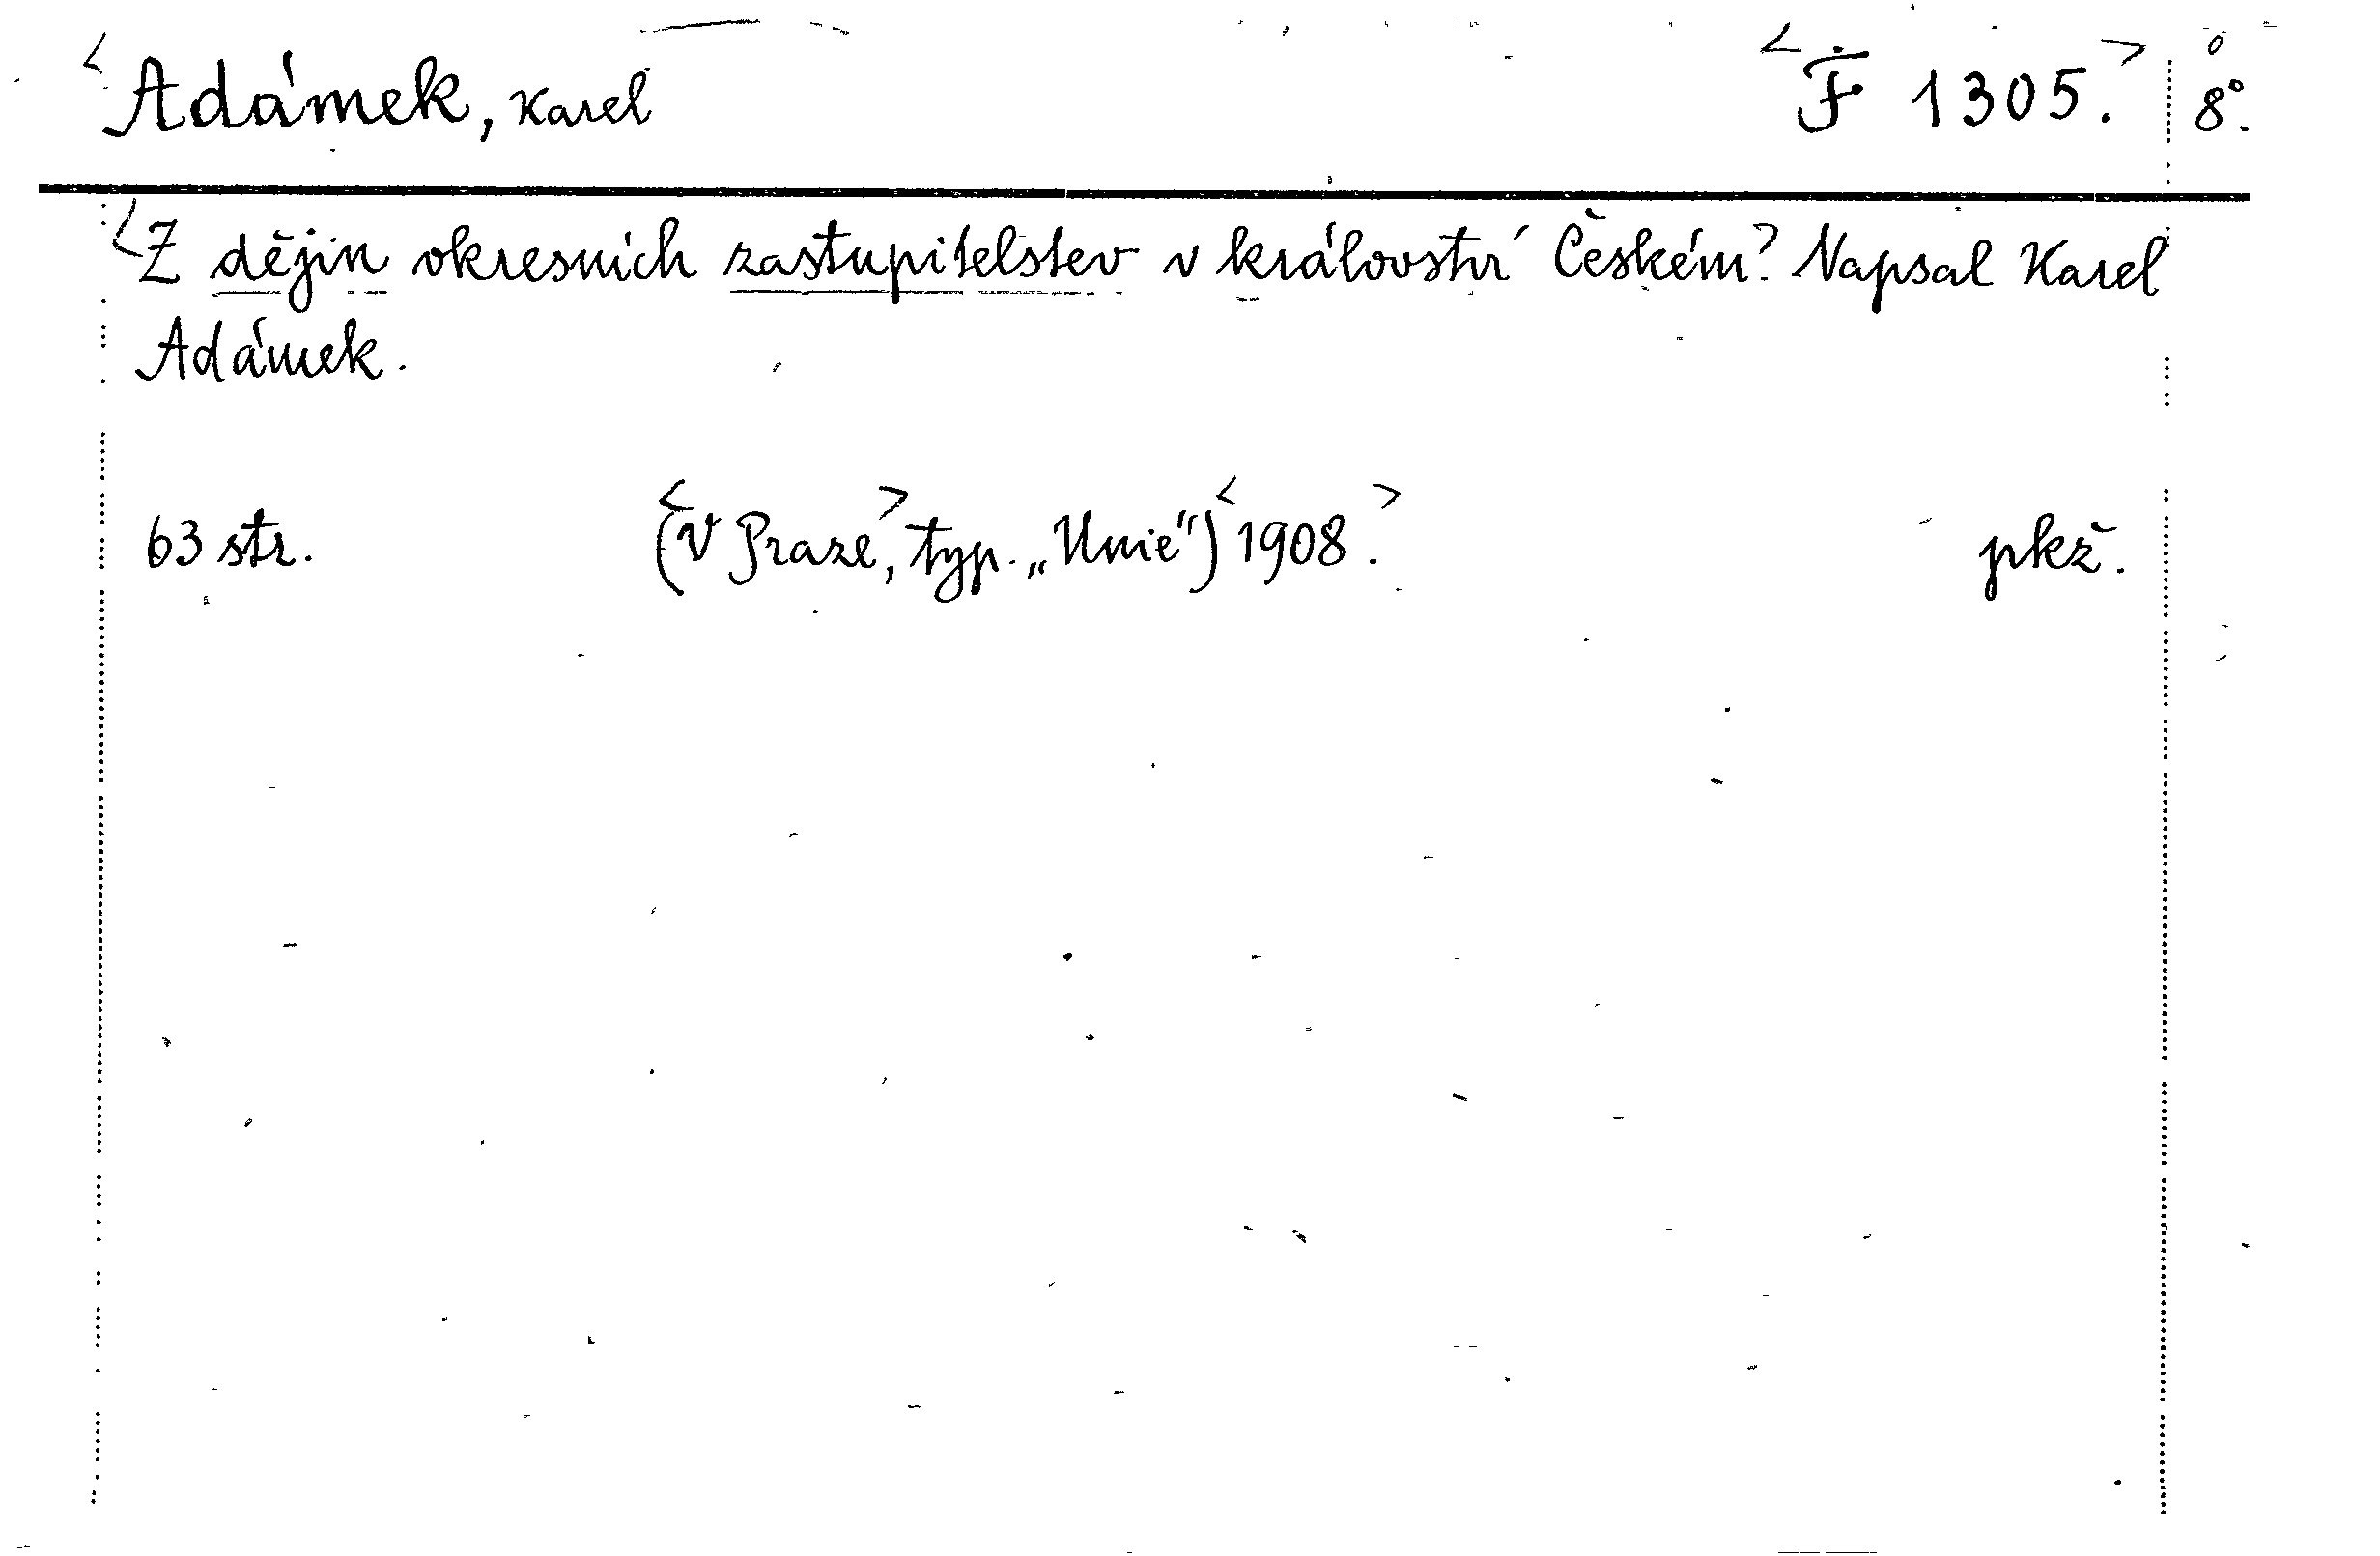 Adámek, Karel F 1305. 8°.
Z dějin okresních zastupitelstev v království Českém. Napsal Karel
Adámek.
63 str. (V Praze, typ. „Unie") 1908. pkž.